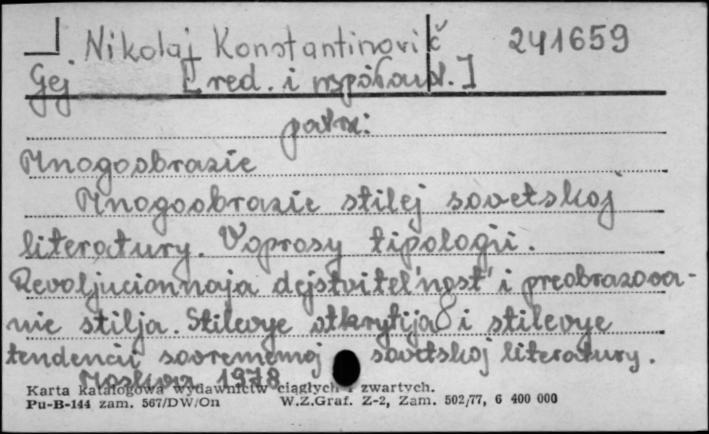 Nikolaj Konstantinovič 241659
Gej [red. i współaut.]
patrz:
Mnogoobrazie
Mnogoobrazie stilej sovetskoj
literatury. Voprosy tipologii.
Revoljucionnaja dejstvitel'nost' i preobrazova-
nie stilja. Stilevye otkrytija i stilevye
tendencii sovremennoj sovetskoj literatury.
Moskva 1978
Karta katalogowa wydawnictw ciągłych i zwartych.
Pu-B-144 zam. 567/DW/On W.Z.Graf. Z-2, Zam. 502/77, 6 400 000